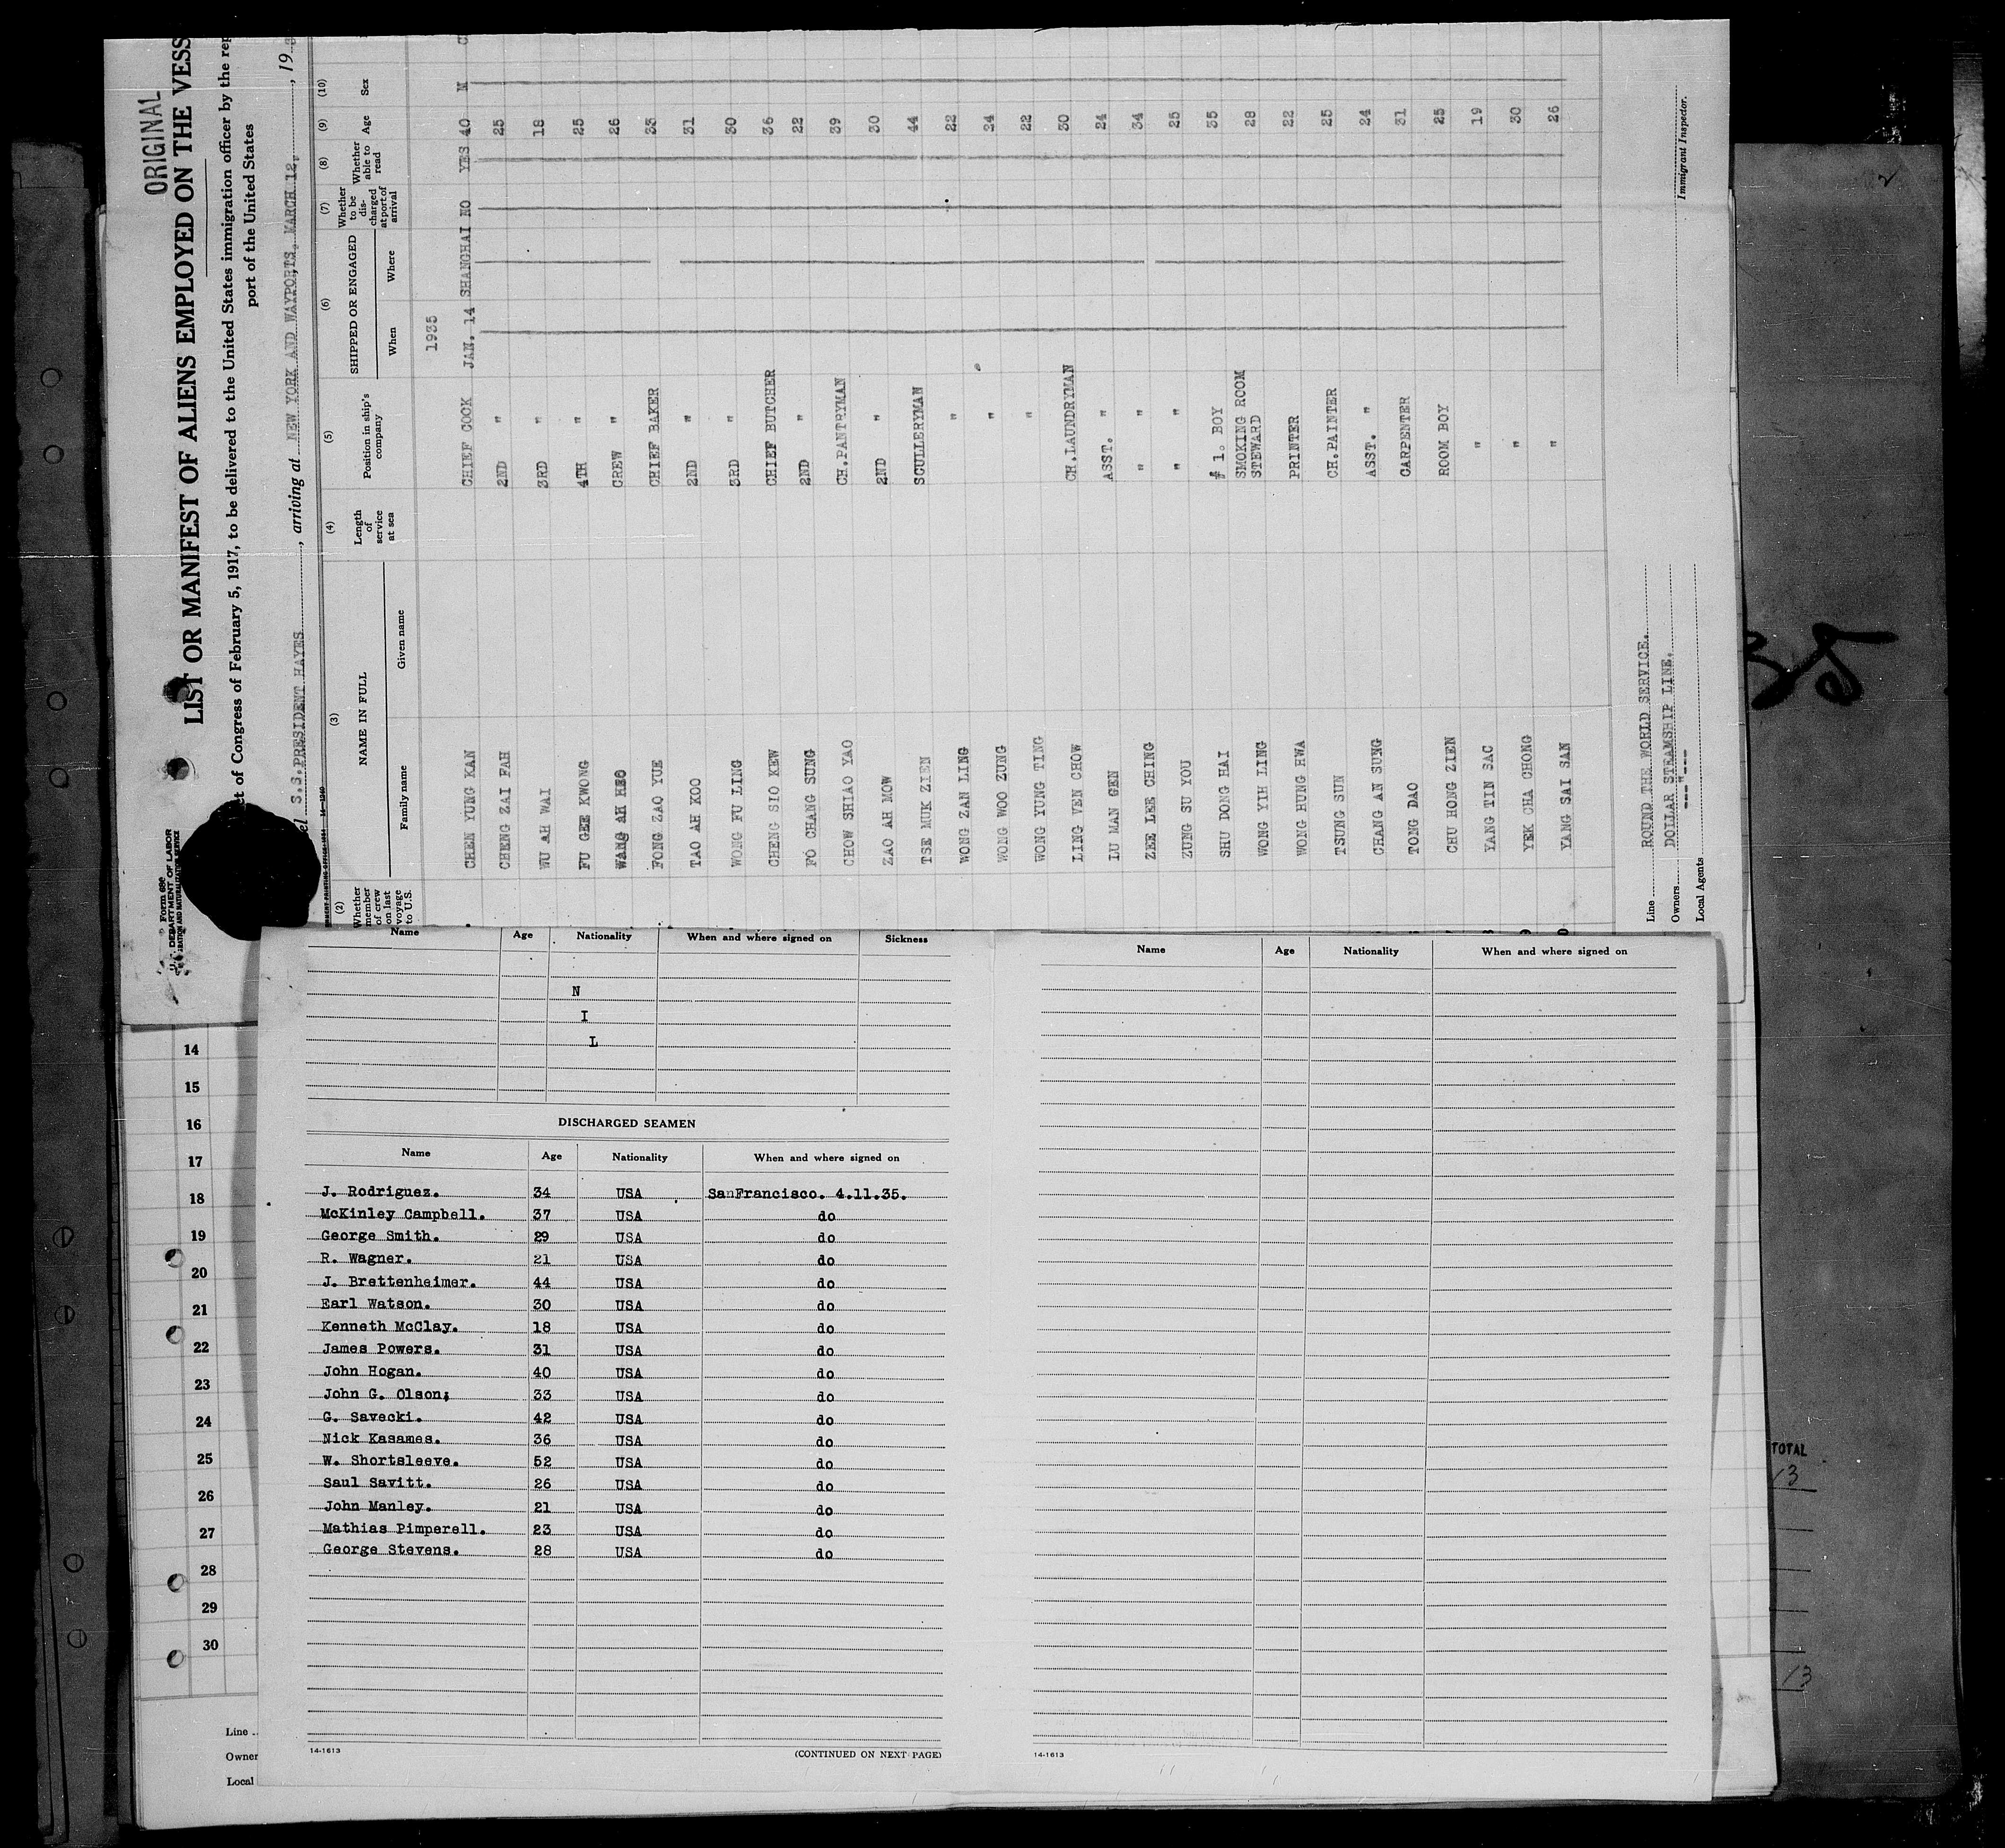 ORIGINAL
Form 680
U.S. DEPARTMENT OF LABOR
LIST OR MANIFEST OF ALIENS EMPLOYED ON THE VESS
ct of Congress of February 5, 1917, to be delivered to the United States immigration officer by the rep
port of the United States
el S.S.PRESIDENT HAYES, arriving at NEW YORK AND WAYPORTS, MARCH 12, 19
(2) (3) (4) (5) (6) (7) (8) (9) (10)
Whether member of crew on last voyage to U.S. NAME IN FULL Family name Given name Length of service at sea Position in ship's company SHIPPED OR ENGAGED When Where Whether to be discharged at port of arrival Whether able to read Age Sex
1935
CHEN YUNG KAN CHIEF COOK JAN. 14 SHANGHAI NO YES 40 M
CHENG ZAI FAH 2ND " 25
WU AH WAI 3RD " 18
FU GEE KWONG 4TH " 25
WANG AH CREW " 26
FONG ZAO YUE CHIEF BAKER 33
TAO AH KOO 2ND " 31
WONG FU LING 3RD " 30
CHENG SIO KEW CHIEF BUTCHER 36
FO CHANG SUNG 2ND " 22
CHOW SHIAO YAO CH.PANTRYMAN 39
ZAO AH MOW 2ND " 30
TSE MUK ZIEN SCULLERYMAN 44
WONG ZAN LING " 22
WONG WOO ZUNG " 24
WONG YUNG TING " 22
LING VEN CHOW CH.LAUNDRYMAN 30
LU MAN GEN ASST. " 24
ZEE LEE CHING " " 34
ZUNG SU YOU " " 25
SHU DONG HAI # 1. BOY 35
WONG YIH LING SMOKING ROOM STEWARD 28
WONG HUNG HWA PRINTER 22
TSUNG SUN CH.PAINTER 25
CHANG AN SUNG ASST. " 24
TONG DAO CARPENTER 31
CHU HONG ZIEN ROOM BOY 25
YANG TIN SAC " 19
YEK CHA CHONG " 30
YANG SAI SAN " 26
Line ROUND THE WORLD SERVICE.
Owners DOLLAR STEAMSHIP LINE.
Local Agents ----"----
Immigrant Inspector.
Name Age Nationality When and where signed on Sickness
N
I
L
DISCHARGED SEAMEN
Name Age Nationality When and where signed on
J. Rodriguez. 34 USA SanFrancisco. 4.11.35.
McKinley Campbell. 37 USA do
George Smith. 29 USA do
R. Wagner. 21 USA do
J. Brettenheimer. 44 USA do
Earl Watson. 30 USA do
Kenneth McClay. 18 USA do
James Powers. 31 USA do
John Hogan. 40 USA do
John G. Olson; 33 USA do
G. Savecki. 42 USA do
Nick Kasames. 36 USA do
W. Shortsleeve. 52 USA do
Saul Savitt. 26 USA do
John Manley. 21 USA do
Mathias Pimperell. 23 USA do
George Stevens. 28 USA do
14-1613
(CONTINUED ON NEXT PAGE)
Name Age Nationality When and where signed on
14-1613
14
15
16
17
18
19
20
21
22
23
24
25
26
27
28
29
30
Line
Owner
Local
35
TOTAL
13
13